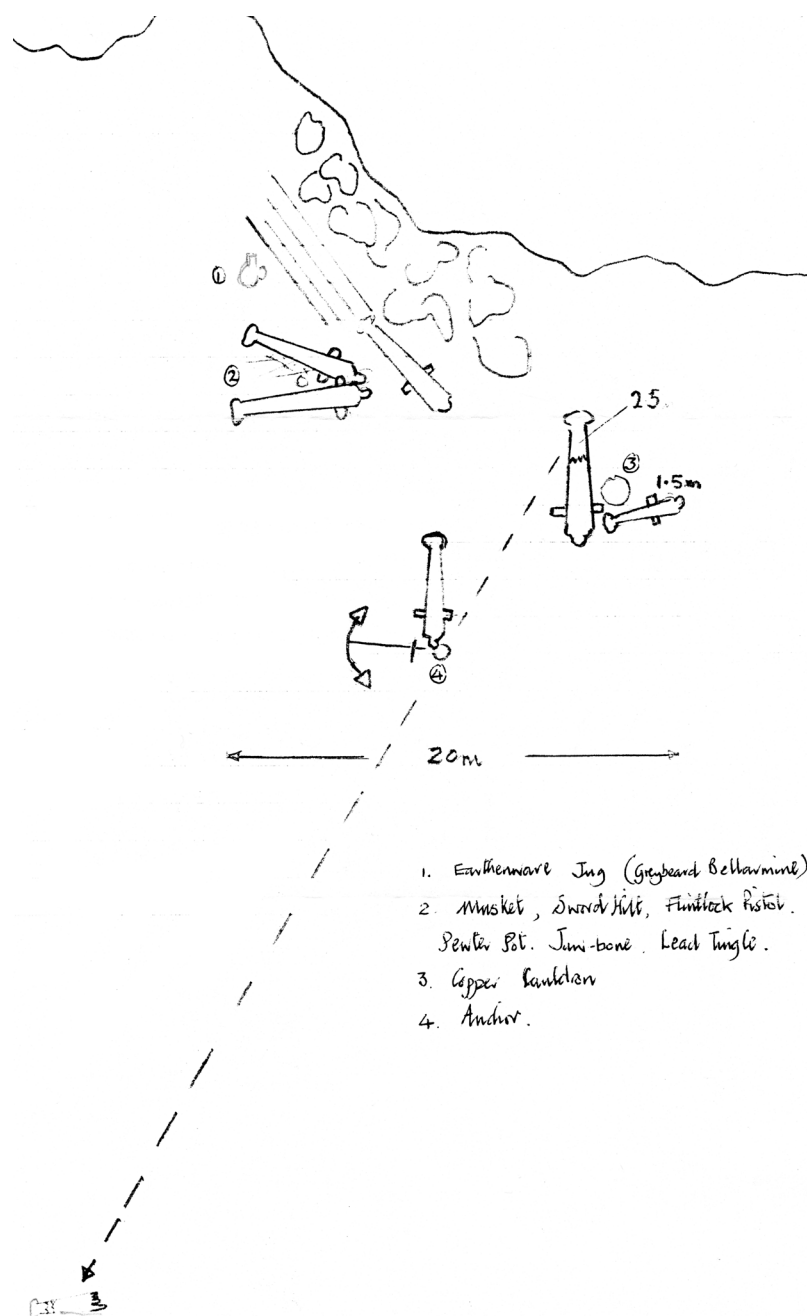 ①
②
25
③
1.5m
④
20m
1. Earthenware Jug (Greybeard Bellarmine)
2. Musket, Sword Hilt, Flintlock Pistol.
Pewter Pot. Jaw-bone. Lead Tingle.
3. Copper Cauldron
4. Anchor.